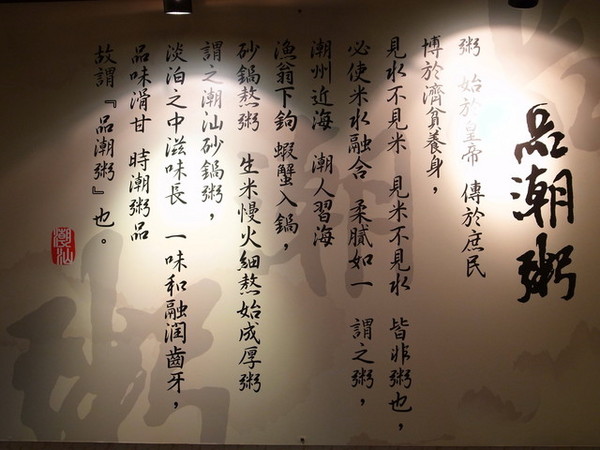 品潮粥
粥 始於皇帝 傳於庶民
博於濟貧養身，
見水不見米 見米不見水 皆非粥也，
必使米水融合 柔膩如一 謂之粥，
潮州近海 潮人習海
漁翁下鉤 蝦蟹入鍋，
砂鍋熬粥 生米慢火細熬始成厚粥
謂之潮汕砂鍋粥，
淡泊之中滋味長 一味和融潤齒牙，
品味滑甘 時潮粥品
故謂『品潮粥』也。
潮汕